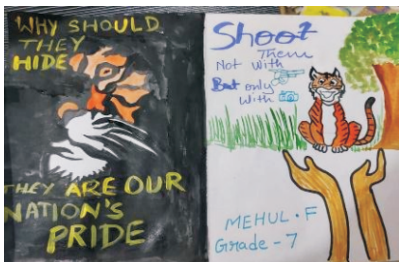 WHY SHOULD
THEY
HIDE
THEY ARE OUR
NATION'S
PRIDE
Shoot
Them
Not with
But only
with
MEHUL.F
Grade-7